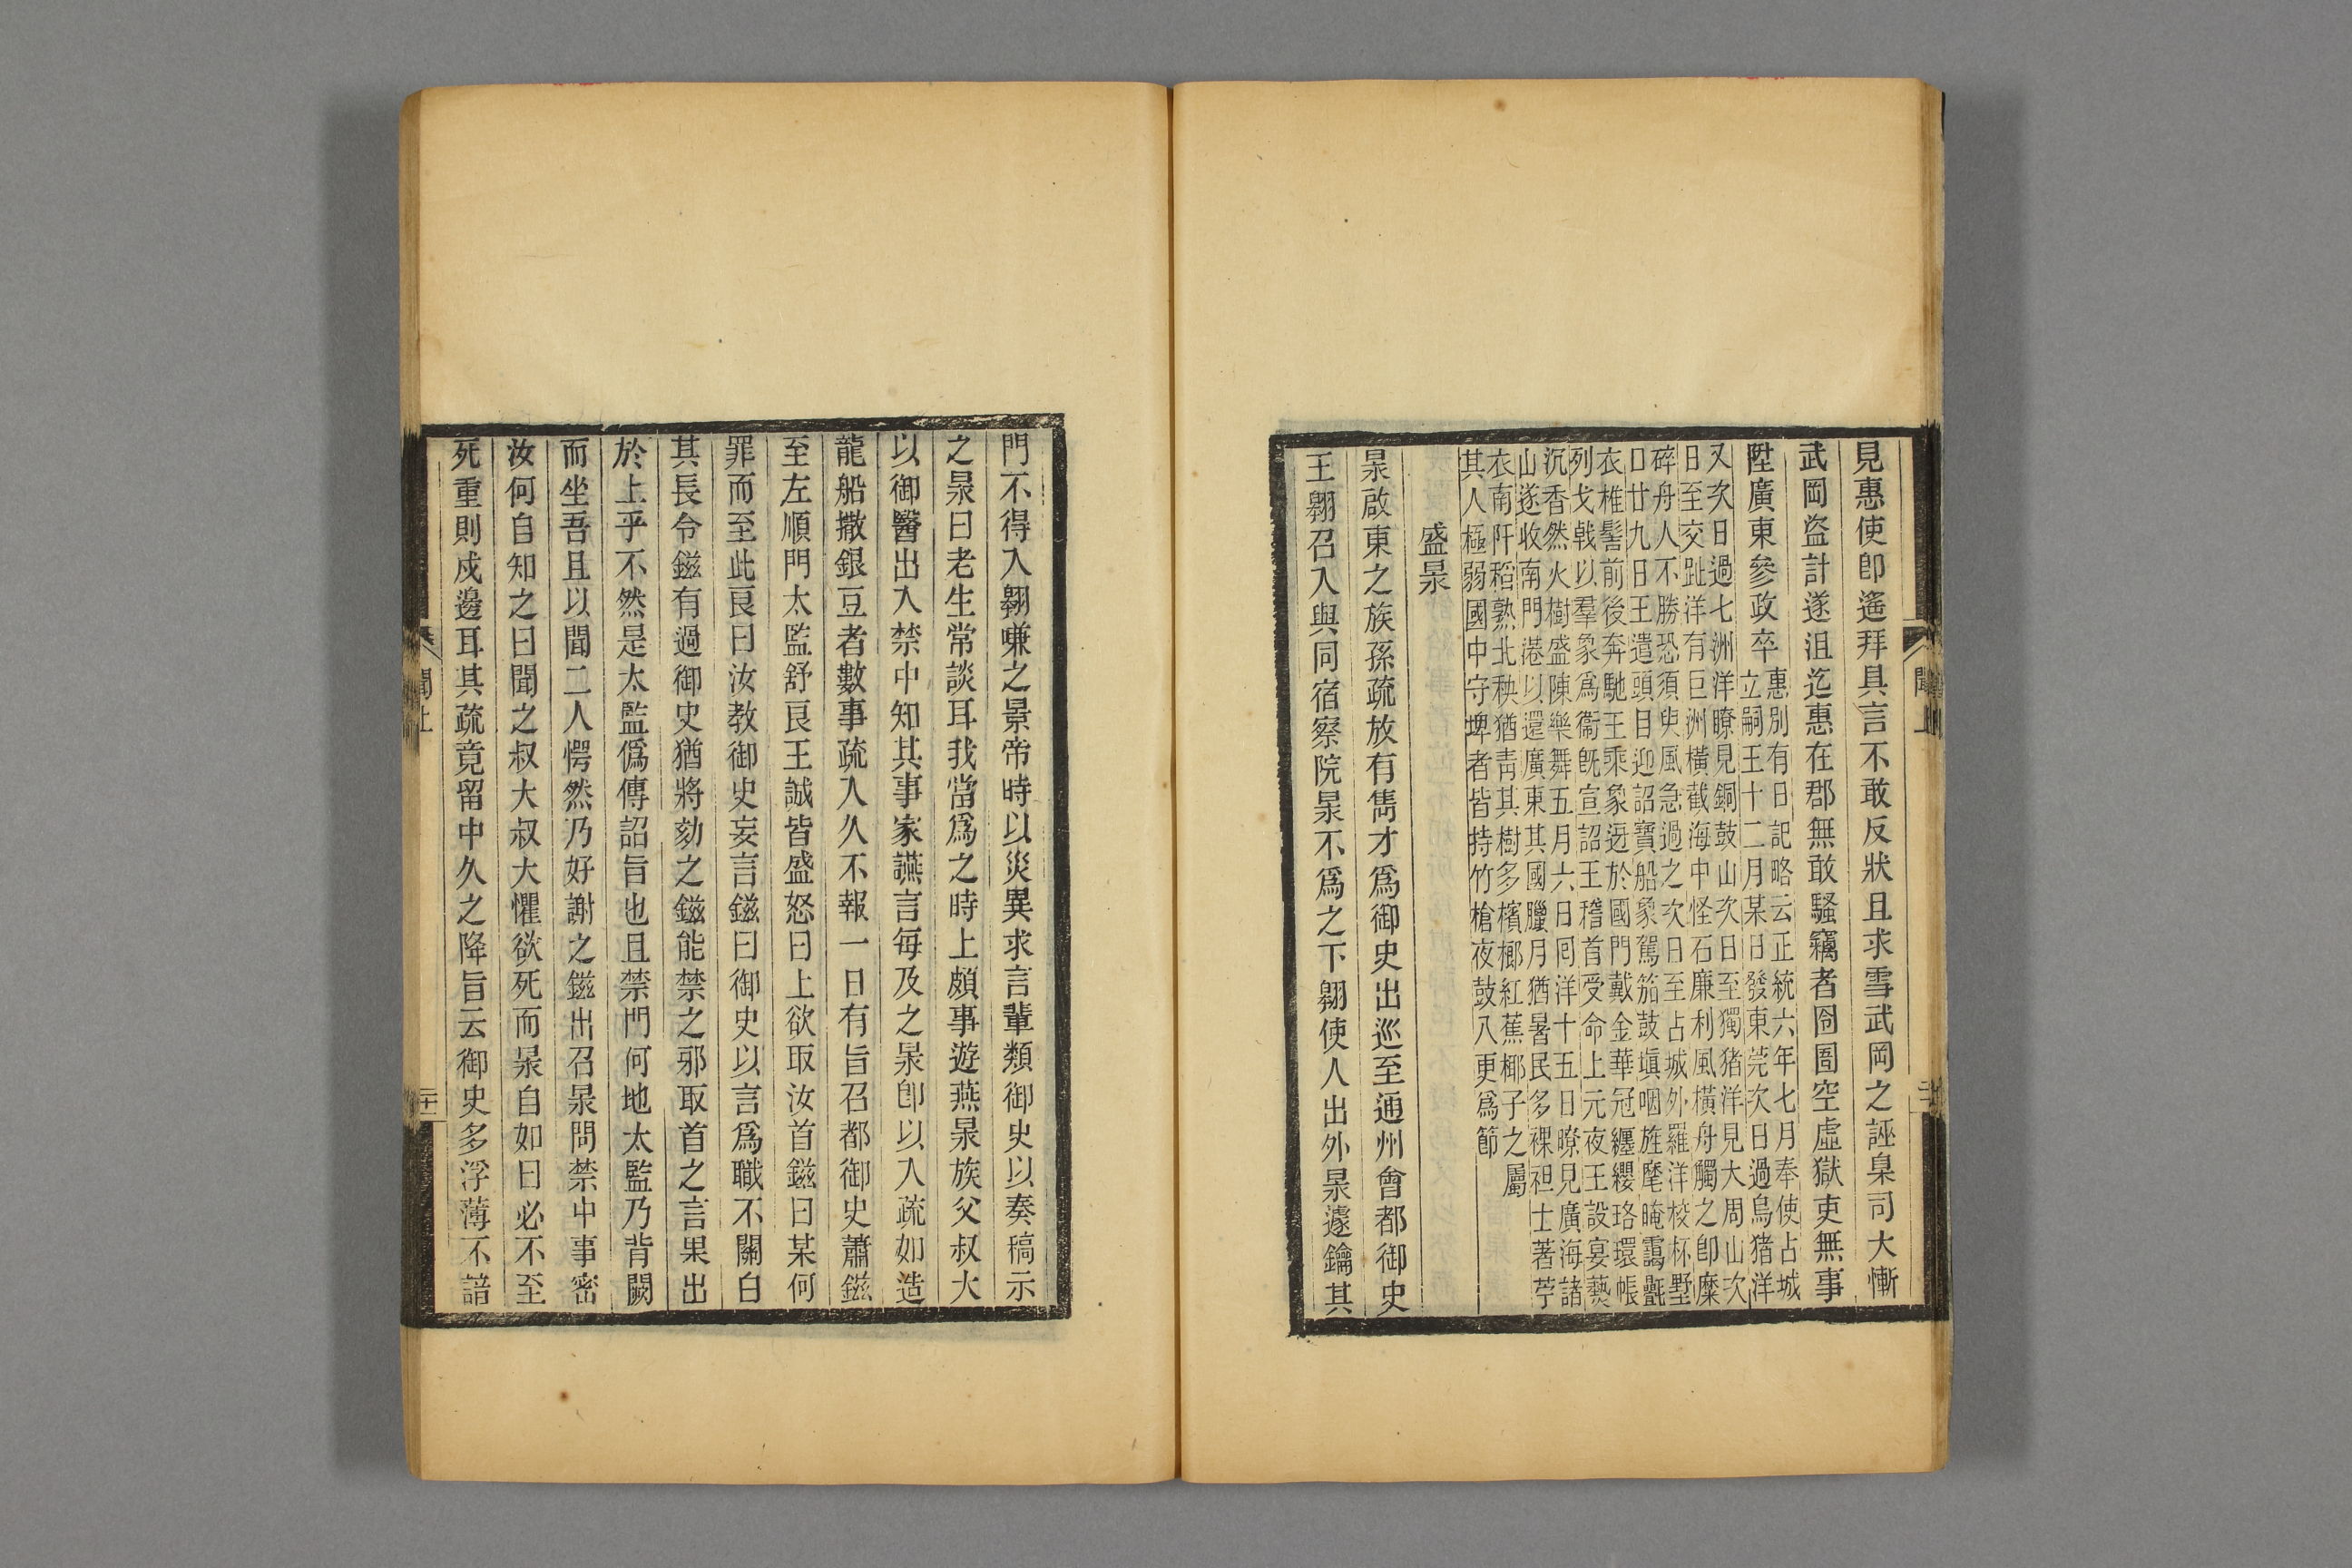 見惠使卽遙拜具言不敢反狀且求雪武岡之誣臬司大慚
武岡盜計遂沮迄惠在郡無敢騷竊者囹圄空虛獄吏無事
陞廣東參政卒
惠別有日記略云正統六年七月奉使占城
立嗣王十二月某日發東莞次日過烏猪洋
又次日過七洲洋瞭見銅鼓山次日至獨猪洋見大周山次
日至交趾洋有巨洲橫截海中怪石廉利風橫舟觸之卽糜
碎舟人不勝恐須臾風急過之次日至占城外羅洋校杯墅
口廿九日王遣頭目迎詔寶船象駕笳鼓塡咽旌麾晻靄氈
衣椎髻前後奔馳王乘象迓於國門戴金華冠纏纓珞環帳
列戈戟以羣象爲衞旣宣詔王稽首受命上元夜王設宴爇
沉香然火樹盛陳樂舞五月六日囘洋十五日瞭見廣海諸
山遂收南門港以還廣東其國臘月猶暑民多裸袒士著苧
衣南阡稻熟北秧猶靑其樹多檳榔紅蕉椰子之屬
其人極弱國中守埤者皆持竹槍夜鼓八更爲節
盛㫤
㫤啟東之族孫疏放有雋才爲御史出巡至通州會都御史
王翺召入與同宿察院㫤不爲之下翺使人出外㫤遽鑰其
門不得入翺嗛之景帝時以災異求言輩類御史以奏稿示
之㫤曰老生常談耳我當爲之時上頗事遊燕㫤族父叔大
以御醫出入禁中知其事家讌言每及之㫤卽以入疏如造
龍船撒銀豆者數事疏入久不報一日有旨召都御史蕭鎡
至左順門太監舒良王誠皆盛怒曰上欲取汝首鎡曰某何
罪而至此良曰汝教御史妄言鎡曰御史以言爲職不關白
其長令鎡有過御史猶將劾之鎡能禁之邪取首之言果出
於上乎不然是太監僞傳詔旨也且禁門何地太監乃背闕
而坐吾且以聞二人愕然乃好謝之鎡出召㫤問禁中事密
汝何自知之曰聞之叔大叔大懼欲死而㫤自如曰必不至
死重則戍邊耳其疏竟留中久之降旨云御史多浮薄不諳
聞上